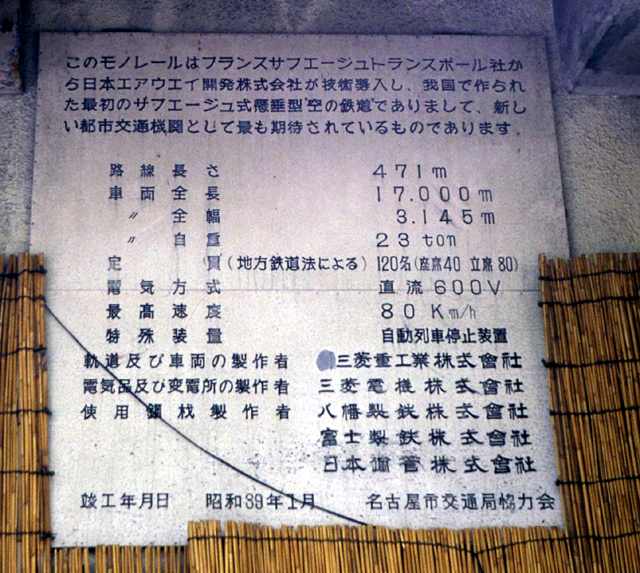 このモノレールはフランスサフエージュトランスポール社か
ら日本エアウエイ開発株式会社が技術導入し、我国で作られ
た最初のサフエージュ式懸垂型"空の鉄道"でありまして、新し
い都市交通機関として最も期待されているものであります。
路線長さ 471m
車両全長 17.000m
〃 全幅 3.145m
〃 自重 23 ton
定員(地方鉄道法による) 120名(座席40 立席80)
電気方式 直流600V
最高速度 80 Km/h
特殊装置 自動列車停止装置
軌道及び車両の製作者 三菱重工業株式會社
電気品及び変電所の製作者 三菱電機株式會社
使用鋼材製作者 八幡製鉄株式會社
富士製鉄株式會社
日本鋼管株式會社
竣工年月日 昭和39年1月 名古屋市交通局協力会